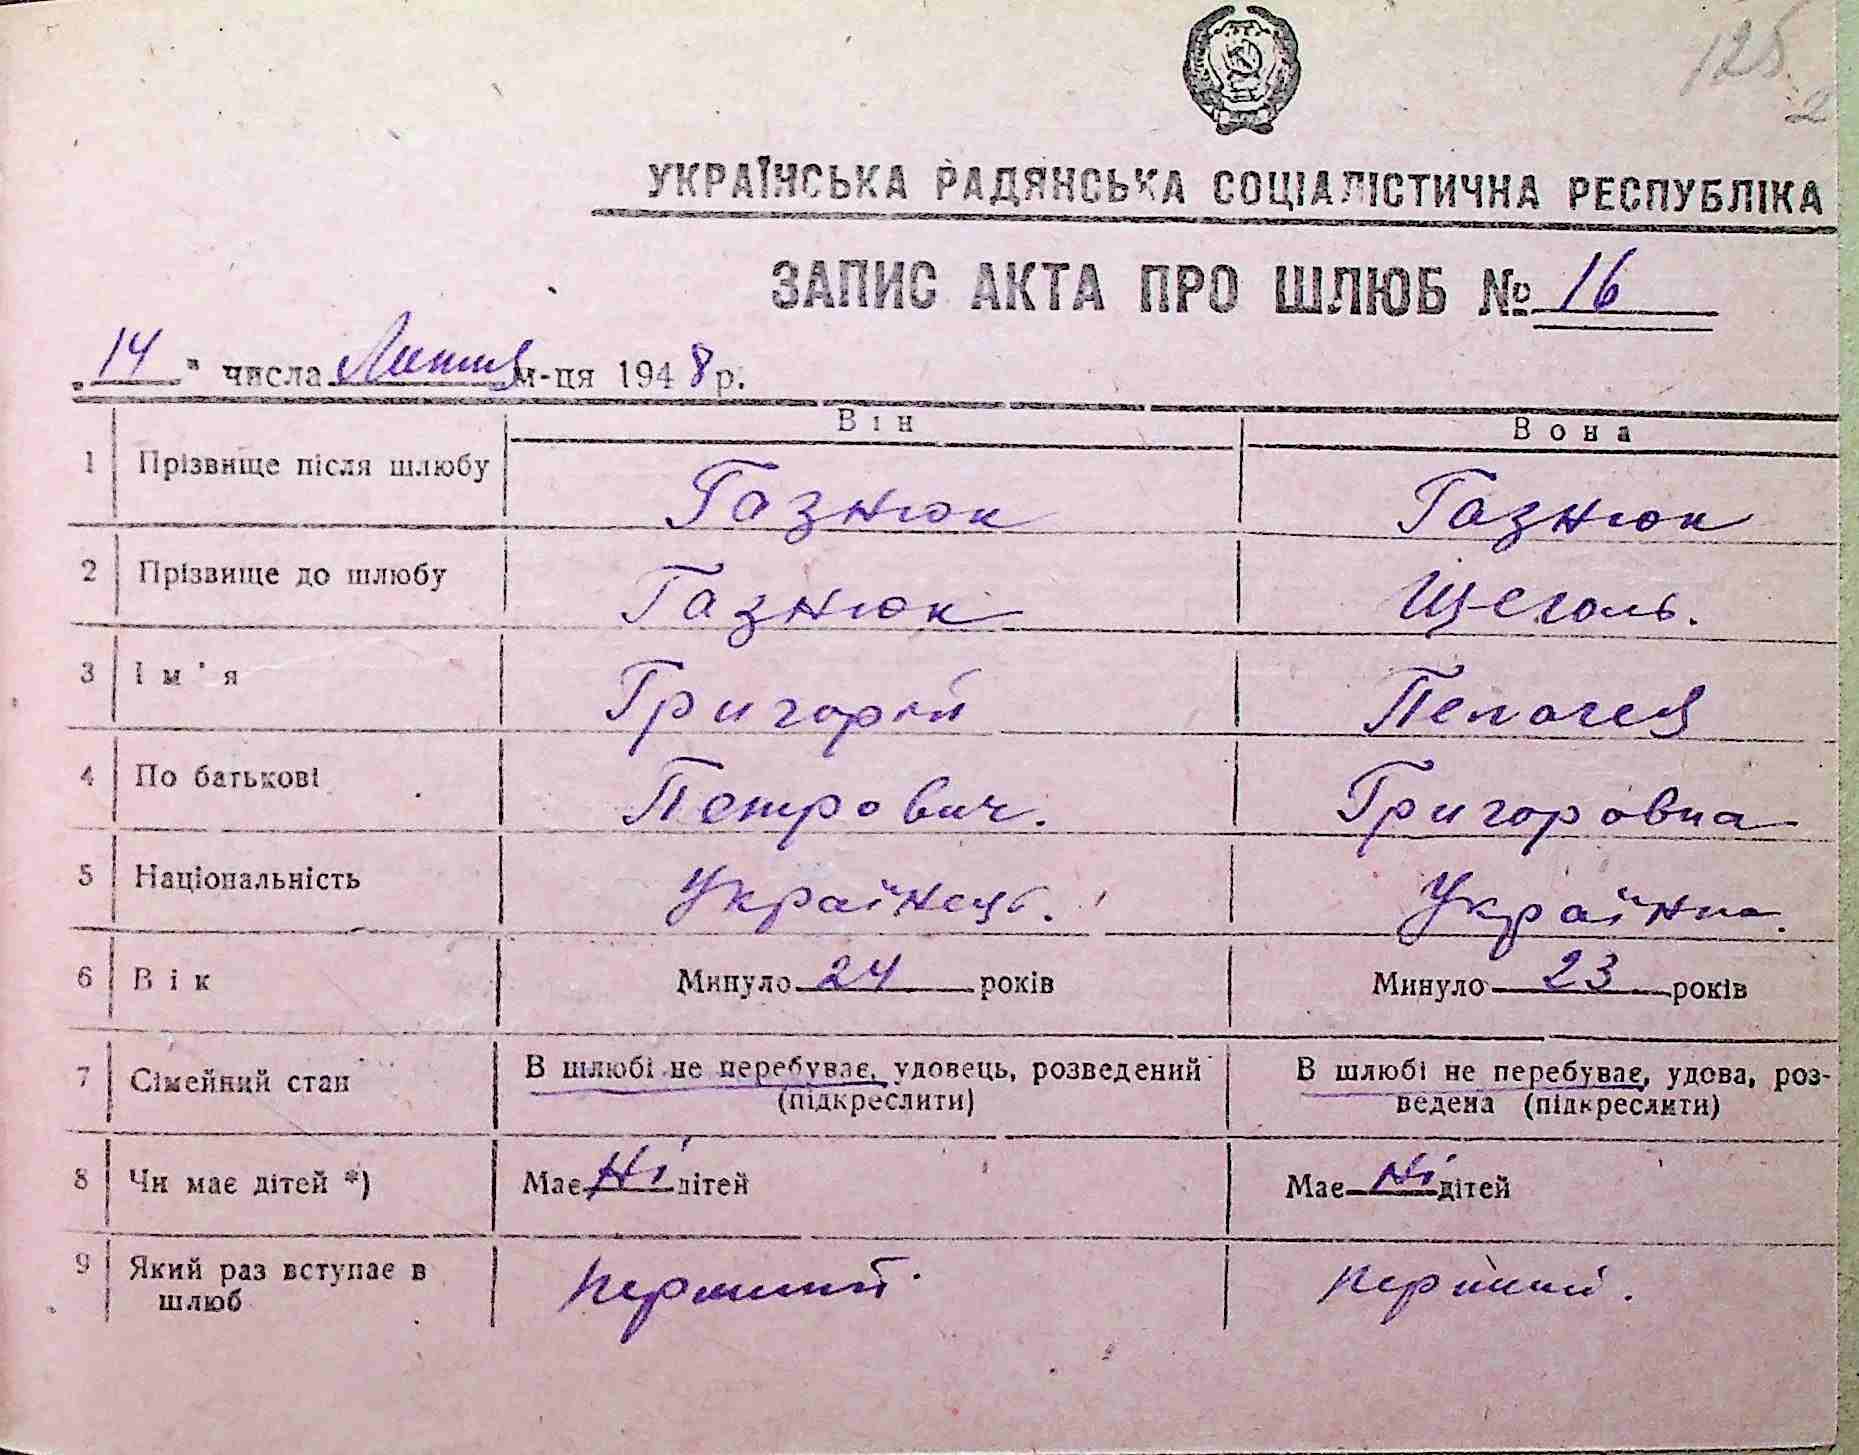 125
2
УКРАЇНСЬКА РАДЯНСЬКА СОЦІАЛІСТИЧНА РЕСПУБЛІКА
ЗАПИС АКТА ПРО ШЛЮБ № 16
„14" числа Лютня м-ця 1948 р.
Він Вона
1 Прізвище після шлюбу Газнюк Газнюк
2 Прізвище до шлюбу Газнюк Щеголь.
3 Ім'я Григорій Пелагея
4 По батькові Петрович. Григоровна
5 Національність Українець. Українка.
6 Вік Минуло 24 років Минуло 23 років
7 Сімейний стан В шлюбі не перебуває, удовець, розведений В шлюбі не перебуває, удова, роз-
(підкреслити) ведена (підкреслити)
8 Чи має дітей *) Має Ні дітей Має Ні дітей
9 Який раз вступає в перший. перший.
шлюб